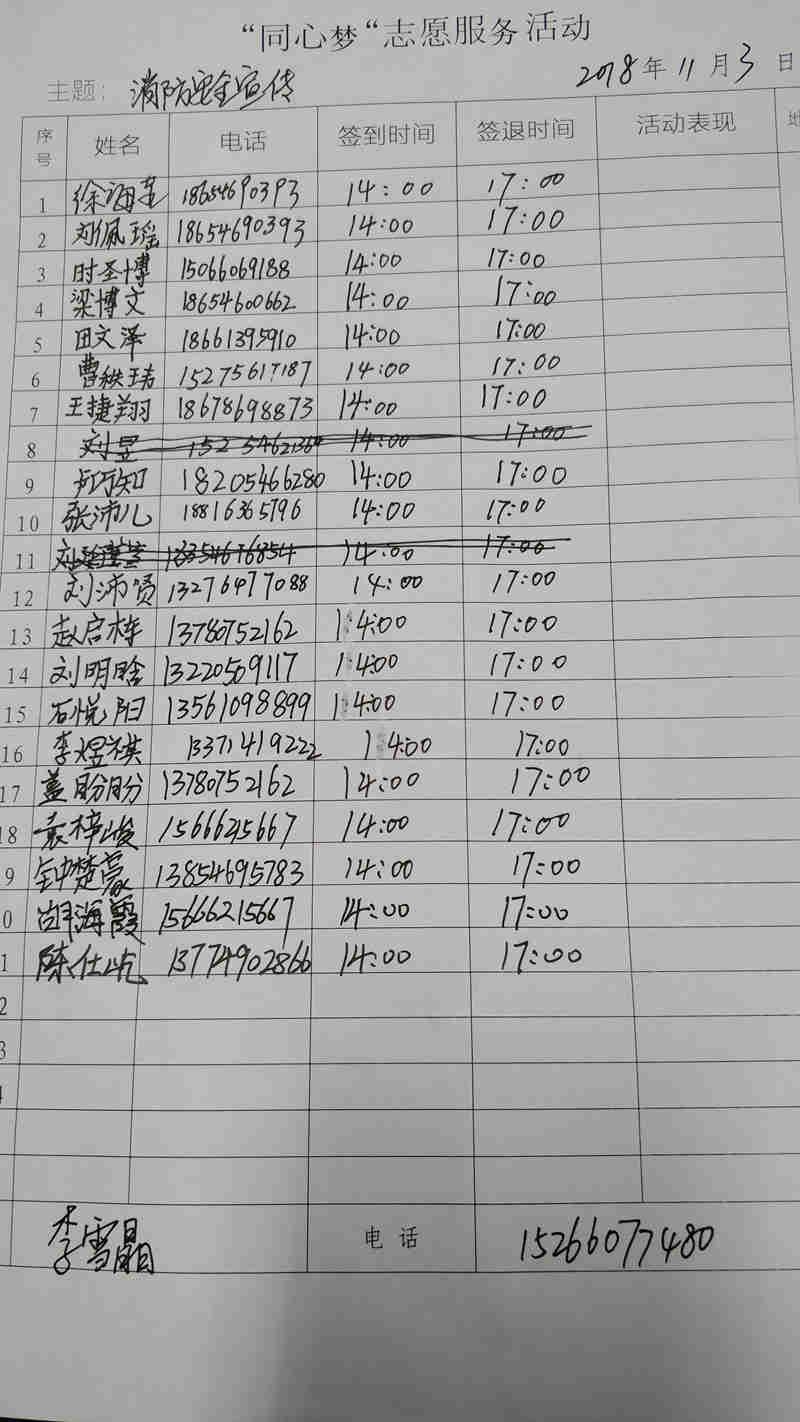 “同心梦“志愿服务活动
主题：消防安全宣传 2018年11月3日
序号 姓名 电话 签到时间 签退时间 活动表现
1 徐海莲 18654690393 14:00 17:00
2 刘佩瑶 18654690393 14:00 17:00
3 时圣博 15066069188 14:00 17:00
4 梁博文 18654600662 14:00 17:00
5 田文泽 18661395910 14:00 17:00
6 曹轶玮 15275617187 14:00 17:00
7 王捷翔 18678698873 14:00 17:00
8 刘昱 14:00 17:00
9 卢巧知 18205466280 14:00 17:00
10 张沛儿 18816365796 14:00 17:00
11 14:00 17:00
12 刘沛贤 13276477088 14:00 17:00
13 赵启栋 13780752162 14:00 17:00
14 刘明晗 13220509117 14:00 17:00
15 石悦阳 13561098899 14:00 17:00
16 李煜祺 13371419222 14:00 17:00
17 盖盼盼 13780752162 14:00 17:00
18 袁梓峻 15666215667 14:00 17:00
9 钟楚豪 13854695783 14:00 17:00
0 胡海霞 15666215667 14:00 17:00
1 陈仕屹 13774902866 14:00 17:00
2
3
4
李雪晶 电话 15266077480